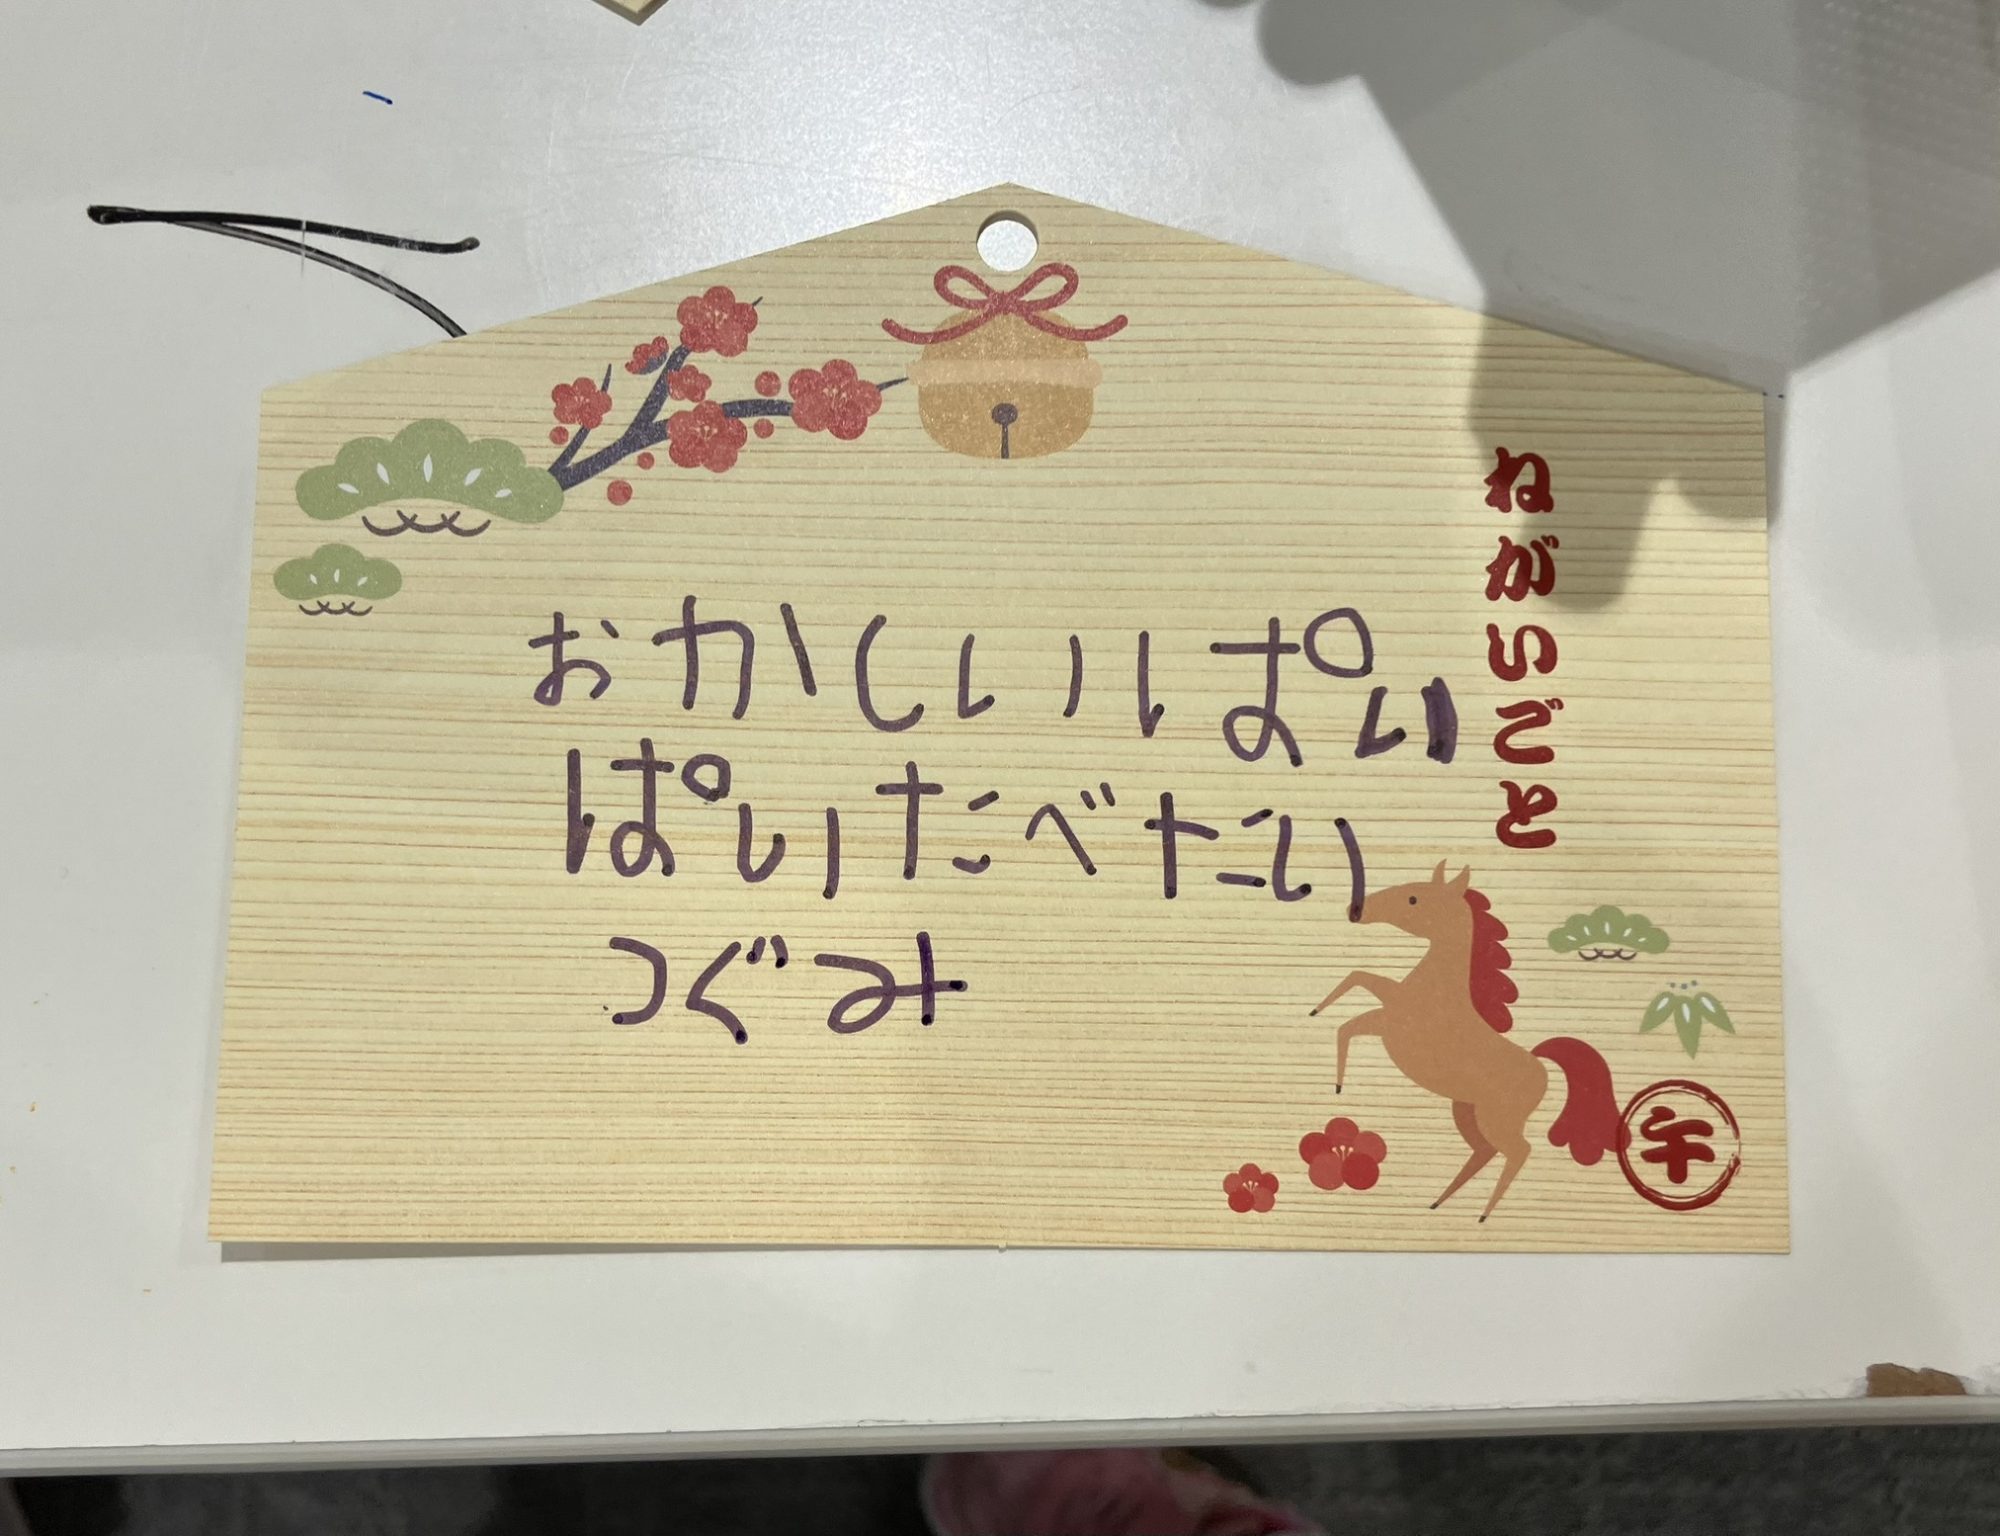 ねがいごと
おかしいいぱい
ぱいたべたい
つぐみ
午